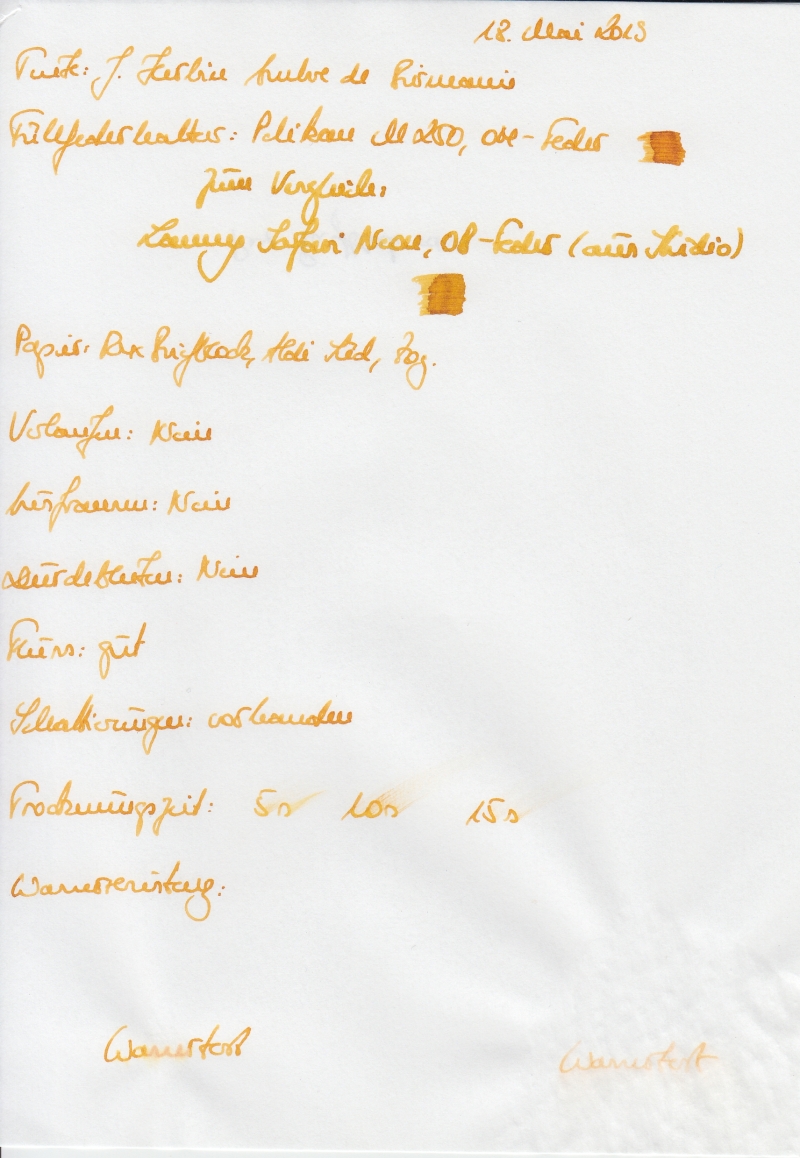 18. Mai 2019
Tinte: J. Herbin Ambre de Birmanie
Füllfederhalter: Pelikan M 250, OBB-Feder
Zum Vergleich:
Lamy Safari Neon, OB-Feder (aus Studio)
Papier: Briefblock, Aldi Süd, 80g.
Verlaufen: Nein
Ausfransen: Nein
Durchbluten: Nein
Fluss: gut
Schattierungen: vorhanden
Trocknungszeit: 5s 10s 15s
Wasserfestigk.:
Wassertest Wassertest